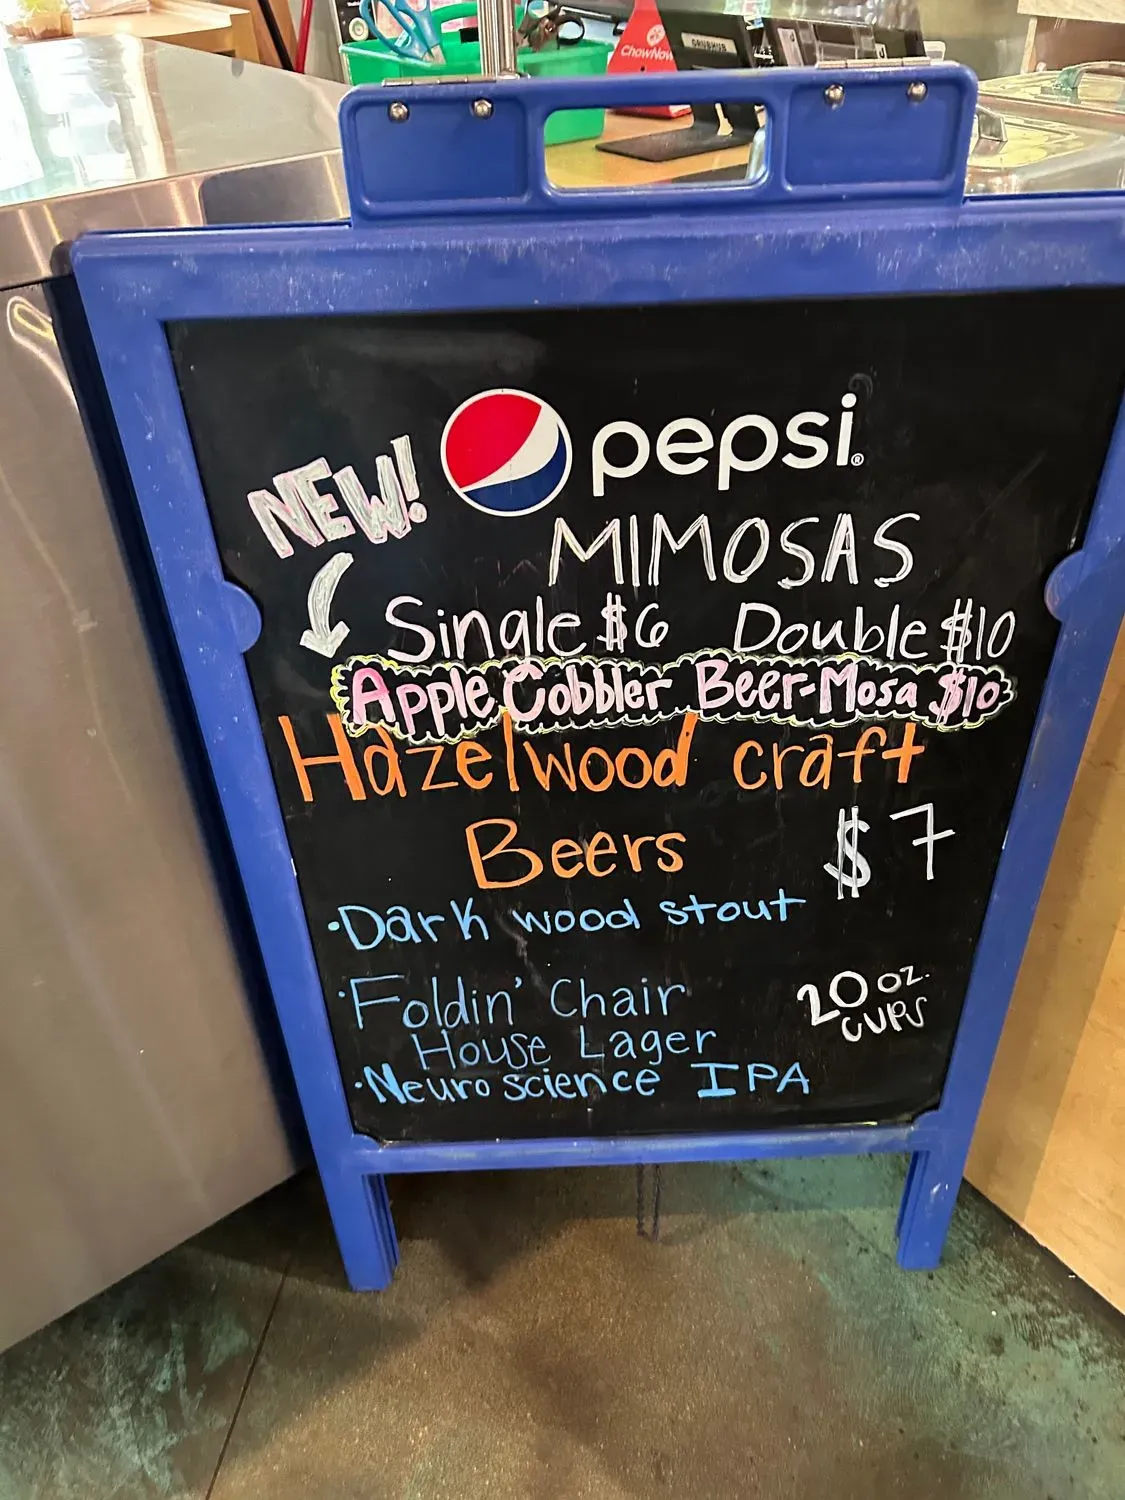 GRUBHUB
ChowNow
pepsi®
NEW!
MIMOSAS
Single $6 Double $10
Apple Cobbler Beer-Mosa $10
Hazelwood craft
Beers $7
·Dark wood stout
·Foldin' Chair
House Lager
20 oz.
CUPS
·Neuroscience IPA